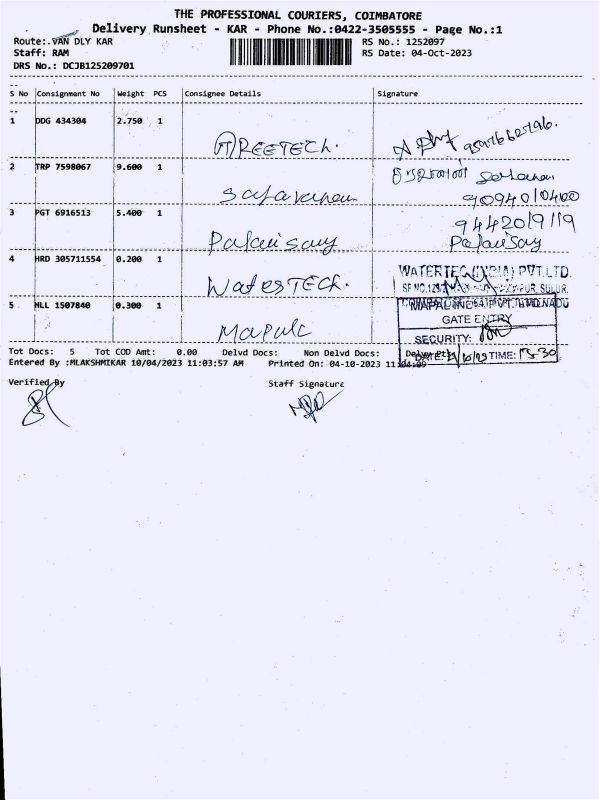 THE PROFESSIONAL COURIERS, COIMBATORE
Delivery Runsheet - KAR - Phone No.:0422-3505555 - Page No.:1
Route:.VAN DLY KAR RS No.: 1252097
Staff: RAM RS Date: 04-Oct-2023
DRS No.: DCJB125209701
S No Consignment No Weight PCS Consignee Details Signature
1 DDG 434304 2.750 1
GREETECh.
2 TRP 7598067 9.600 1
Saravanan
9094010400
3 PGT 6916513 5.400 1
9442019119
Palanisamy Palanisamy
4 HRD 305711554 0.200 1
WATERTEC (INDIA) PVT.LTD.
WatesTECh. SULUR.
5 MLL 1507840 0.300 1
GATE ENTRY
Mapalc SECURITY:
Tot Docs: 5 Tot COD Amt: 0.00 Delvd Docs: Non Delvd Docs:
DATE: TIME: 15-30
Entered By :MLAKSHMIKAR 10/04/2023 11:03:57 AM Printed On: 04-10-2023 11:04:09
Verified By Staff Signature